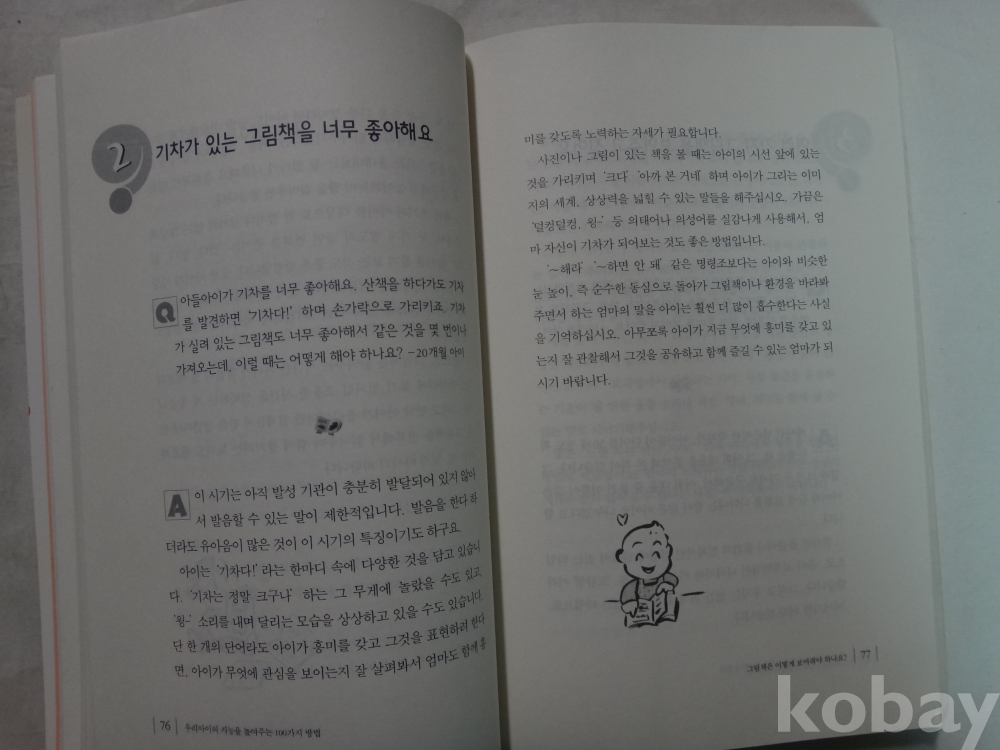 2
기차가 있는 그림책을 너무 좋아해요
Q
아들아이가 기차를 너무 좋아해요. 산책을 하다가도 기차
를 발견하면 '기차다!' 하며 손가락으로 가리키죠. 기차
가 실려 있는 그림책도 너무 좋아해서 같은 것을 몇 번이나
가져오는데, 이럴 때는 어떻게 해야 하나요? -20개월 아이
A
이 시기는 아직 발성 기관이 충분히 발달되어 있지 않아
서 발음할 수 있는 말이 제한적입니다. 발음을 한다 하
더라도 유아음이 많은 것이 이 시기의 특징이기도 하구요.
아이는 '기차다!' 라는 한마디 속에 다양한 것을 담고 있습니
다. '기차는 정말 크구나' 하는 그 무게에 놀랐을 수도 있고,
'윙-' 소리를 내며 달리는 모습을 상상하고 있을 수도 있습니다.
단 한 개의 단어라도 아이가 흥미를 갖고 그것을 표현하려 한다
면, 아이가 무엇에 관심을 보이는지 잘 살펴봐서 엄마도 함께 흥
76 우리아이의 지능을 높여주는 100가지 방법
미를 갖도록 노력하는 자세가 필요합니다.
사진이나 그림이 있는 책을 볼 때는 아이의 시선 앞에 있는
것을 가리키며 '크다' '아까 본 거네' 하며 아이가 그리는 이미
지의 세계, 상상력을 넓힐 수 있는 말들을 해주십시오. 가끔은
'덜컹덜컹, 윙-' 등 의태어나 의성어를 실감나게 사용해서, 엄
마 자신이 기차가 되어보는 것도 좋은 방법입니다.
'~해라' '~하면 안 돼' 같은 명령조보다는 아이와 비슷한
눈 높이, 즉 순수한 동심으로 돌아가 그림책이나 환경을 바라봐
주면서 하는 엄마의 말을 아이는 훨씬 더 많이 흡수한다는 사실
을 기억하십시오. 아무쪼록 아이가 지금 무엇에 흥미를 갖고 있
는지 잘 관찰해서 그것을 공유하고 함께 즐길 수 있는 엄마가 되
시기 바랍니다.
그림책은 어떻게 보여줘야 하나요? 77
kobay